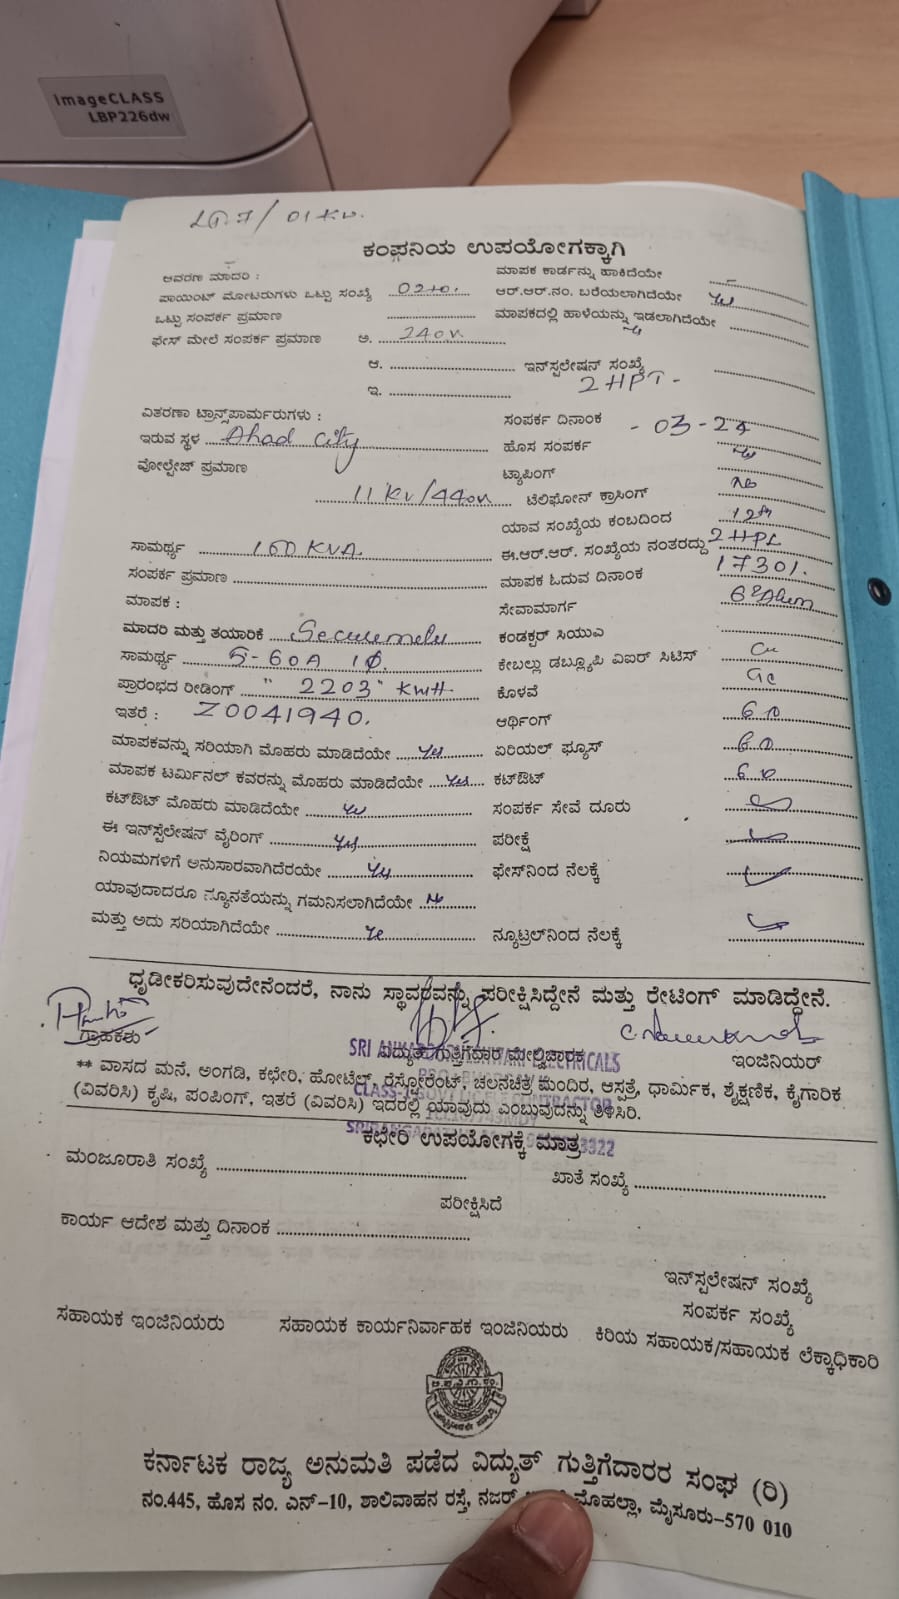 imageCLASS
LBP226dw
LT.7 / 01 KW.
ಕಂಪನಿಯ ಉಪಯೋಗಕ್ಕಾಗಿ
ಆವರಣ ಮಾದರಿ :
ಮಾಪಕ ಕಾರ್ಡನ್ನು ಹಾಕಿದೆಯೇ
ಪಾಯಿಂಟ್ ಮೋಟರುಗಳು ಒಟ್ಟು ಸಂಖ್ಯೆ
ಆರ್.ಆರ್.ನಂ. ಬರೆಯಲಾಗಿದೆಯೇ yes
ಒಟ್ಟು ಸಂಪರ್ಕ ಪ್ರಮಾಣ
ಮಾಪಕದಲ್ಲಿ ಹಾಳೆಯನ್ನು ಇಡಲಾಗಿದೆಯೇ
ಫೇಸ್ ಮೇಲೆ ಸಂಪರ್ಕ ಪ್ರಮಾಣ ಅ. 240v.
ಆ. ಇನ್‌ಸ್ಪಲೇಷನ್ ಸಂಖ್ಯೆ
ಇ. 2HPT -
ವಿತರಣಾ ಟ್ರಾನ್ಸ್‌ಪಾರ್ಮರುಗಳು :
ಸಂಪರ್ಕ ದಿನಾಂಕ
ಇರುವ ಸ್ಥಳ Ahad City
ಹೊಸ ಸಂಪರ್ಕ yes
ವೋಲ್ಟೇಜ್ ಪ್ರಮಾಣ
ಟ್ಯಾಪಿಂಗ್ No
11 KV/440v ಟೆಲಿಫೋನ್ ಕ್ರಾಸಿಂಗ್
ಯಾವ ಸಂಖ್ಯೆಯ ಕಂಬದಿಂದ
ಸಾಮರ್ಥ್ಯ 160 KVA.
ಈ.ಆರ್.ಆರ್. ಸಂಖ್ಯೆಯ ನಂತರದ್ದು 2HPL
ಸಂಪರ್ಕ ಪ್ರಮಾಣ
ಮಾಪಕ ಓದುವ ದಿನಾಂಕ 17301.
ಮಾಪಕ :
ಸೇವಾಮಾರ್ಗ
ಮಾದರಿ ಮತ್ತು ತಯಾರಿಕೆ
ಕಂಡಕ್ಟರ್ ಸಿಯುವಿ
ಸಾಮರ್ಥ್ಯ 5-60A 1Φ.
ಕೇಬಲ್ಲು ಡಬ್ಲ್ಯೂಪಿ ವಿಐರ್ ಸಿಟಿಸ್ Cu
ಪ್ರಾರಂಭದ ರೀಡಿಂಗ್ " 2203" KWH.
ಕೊಳವೆ
ಇತರೆ : Z0041940.
ಆರ್ಥಿಂಗ್
ಮಾಪಕವನ್ನು ಸರಿಯಾಗಿ ಮೊಹರು ಮಾಡಿದೆಯೇ yes
ಏರಿಯಲ್ ಫ್ಯೂಸ್
ಮಾಪಕ ಟರ್ಮಿನಲ್ ಕವರನ್ನು ಮೊಹರು ಮಾಡಿದೆಯೇ yes
ಕಟ್‌ಔಟ್
ಕಟ್‌ಔಟ್ ಮೊಹರು ಮಾಡಿದೆಯೇ yes
ಸಂಪರ್ಕ ಸೇವೆ ದೂರು
ಈ ಇನ್‌ಸ್ಪೆಲೇಷನ್ ವೈರಿಂಗ್ yes
ಪರೀಕ್ಷೆ
ನಿಯಮಗಳಿಗೆ ಅನುಸಾರವಾಗಿದೆರಯೇ yes
ಫೇಸ್‌ನಿಂದ ನೆಲಕ್ಕೆ
ಯಾವುದಾದರೂ ನ್ಯೂನತೆಯನ್ನು ಗಮನಿಸಲಾಗಿದೆಯೇ No
ಮತ್ತು ಅದು ಸರಿಯಾಗಿದೆಯೇ
ನ್ಯೂಟ್ರಲ್‌ನಿಂದ ನೆಲಕ್ಕೆ
ಧೃಡೀಕರಿಸುವುದೇನೆಂದರೆ, ನಾನು ಸ್ಥಾವರವನ್ನು ಪರೀಕ್ಷಿಸಿದ್ದೇನೆ ಮತ್ತು ರೇಟಿಂಗ್ ಮಾಡಿದ್ದೇನೆ.
ಗ್ರಾಹಕರು
ವಿದ್ಯುತ್ ಗುತ್ತಿಗೆದಾರ ಮೇಲ್ವಿಚಾರಕ
ಇಂಜಿನಿಯರ್
** ವಾಸದ ಮನೆ, ಅಂಗಡಿ, ಕಛೇರಿ, ಹೋಟೆಲ್, ರೆಸ್ಟೋರೆಂಟ್, ಚಲನಚಿತ್ರ ಮಂದಿರ, ಆಸ್ಪತ್ರೆ, ಧಾರ್ಮಿಕ, ಶೈಕ್ಷಣಿಕ, ಕೈಗಾರಿಕ
(ವಿವರಿಸಿ) ಕೃಷಿ, ಪಂಪಿಂಗ್, ಇತರೆ (ವಿವರಿಸಿ) ಇದರಲ್ಲಿ ಯಾವುದು ಎಂಬುವುದನ್ನು ತಿಳಿಸಿರಿ.
ಕಛೇರಿ ಉಪಯೋಗಕ್ಕೆ ಮಾತ್ರ
ಮಂಜೂರಾತಿ ಸಂಖ್ಯೆ
ಖಾತೆ ಸಂಖ್ಯೆ
ಪರೀಕ್ಷಿಸಿದೆ
ಕಾರ್ಯ ಆದೇಶ ಮತ್ತು ದಿನಾಂಕ
ಇನ್‌ಸ್ಪಲೇಷನ್ ಸಂಖ್ಯೆ
ಸಂಪರ್ಕ ಸಂಖ್ಯೆ
ಸಹಾಯಕ ಇಂಜಿನಿಯರು ಸಹಾಯಕ ಕಾರ್ಯನಿರ್ವಾಹಕ ಇಂಜಿನಿಯರು ಕಿರಿಯ ಸಹಾಯಕ/ಸಹಾಯಕ ಲೆಕ್ಕಾಧಿಕಾರಿ
ಕರ್ನಾಟಕ ರಾಜ್ಯ ಅನುಮತಿ ಪಡೆದ ವಿದ್ಯುತ್ ಗುತ್ತಿಗೆದಾರರ ಸಂಘ (ರಿ)
ನಂ.445, ಹೊಸ ನಂ. ಎನ್-10, ಶಾಲಿವಾಹನ ರಸ್ತೆ, ನಜರ್ ಮೊಹಲ್ಲಾ, ಮೈಸೂರು-570 010